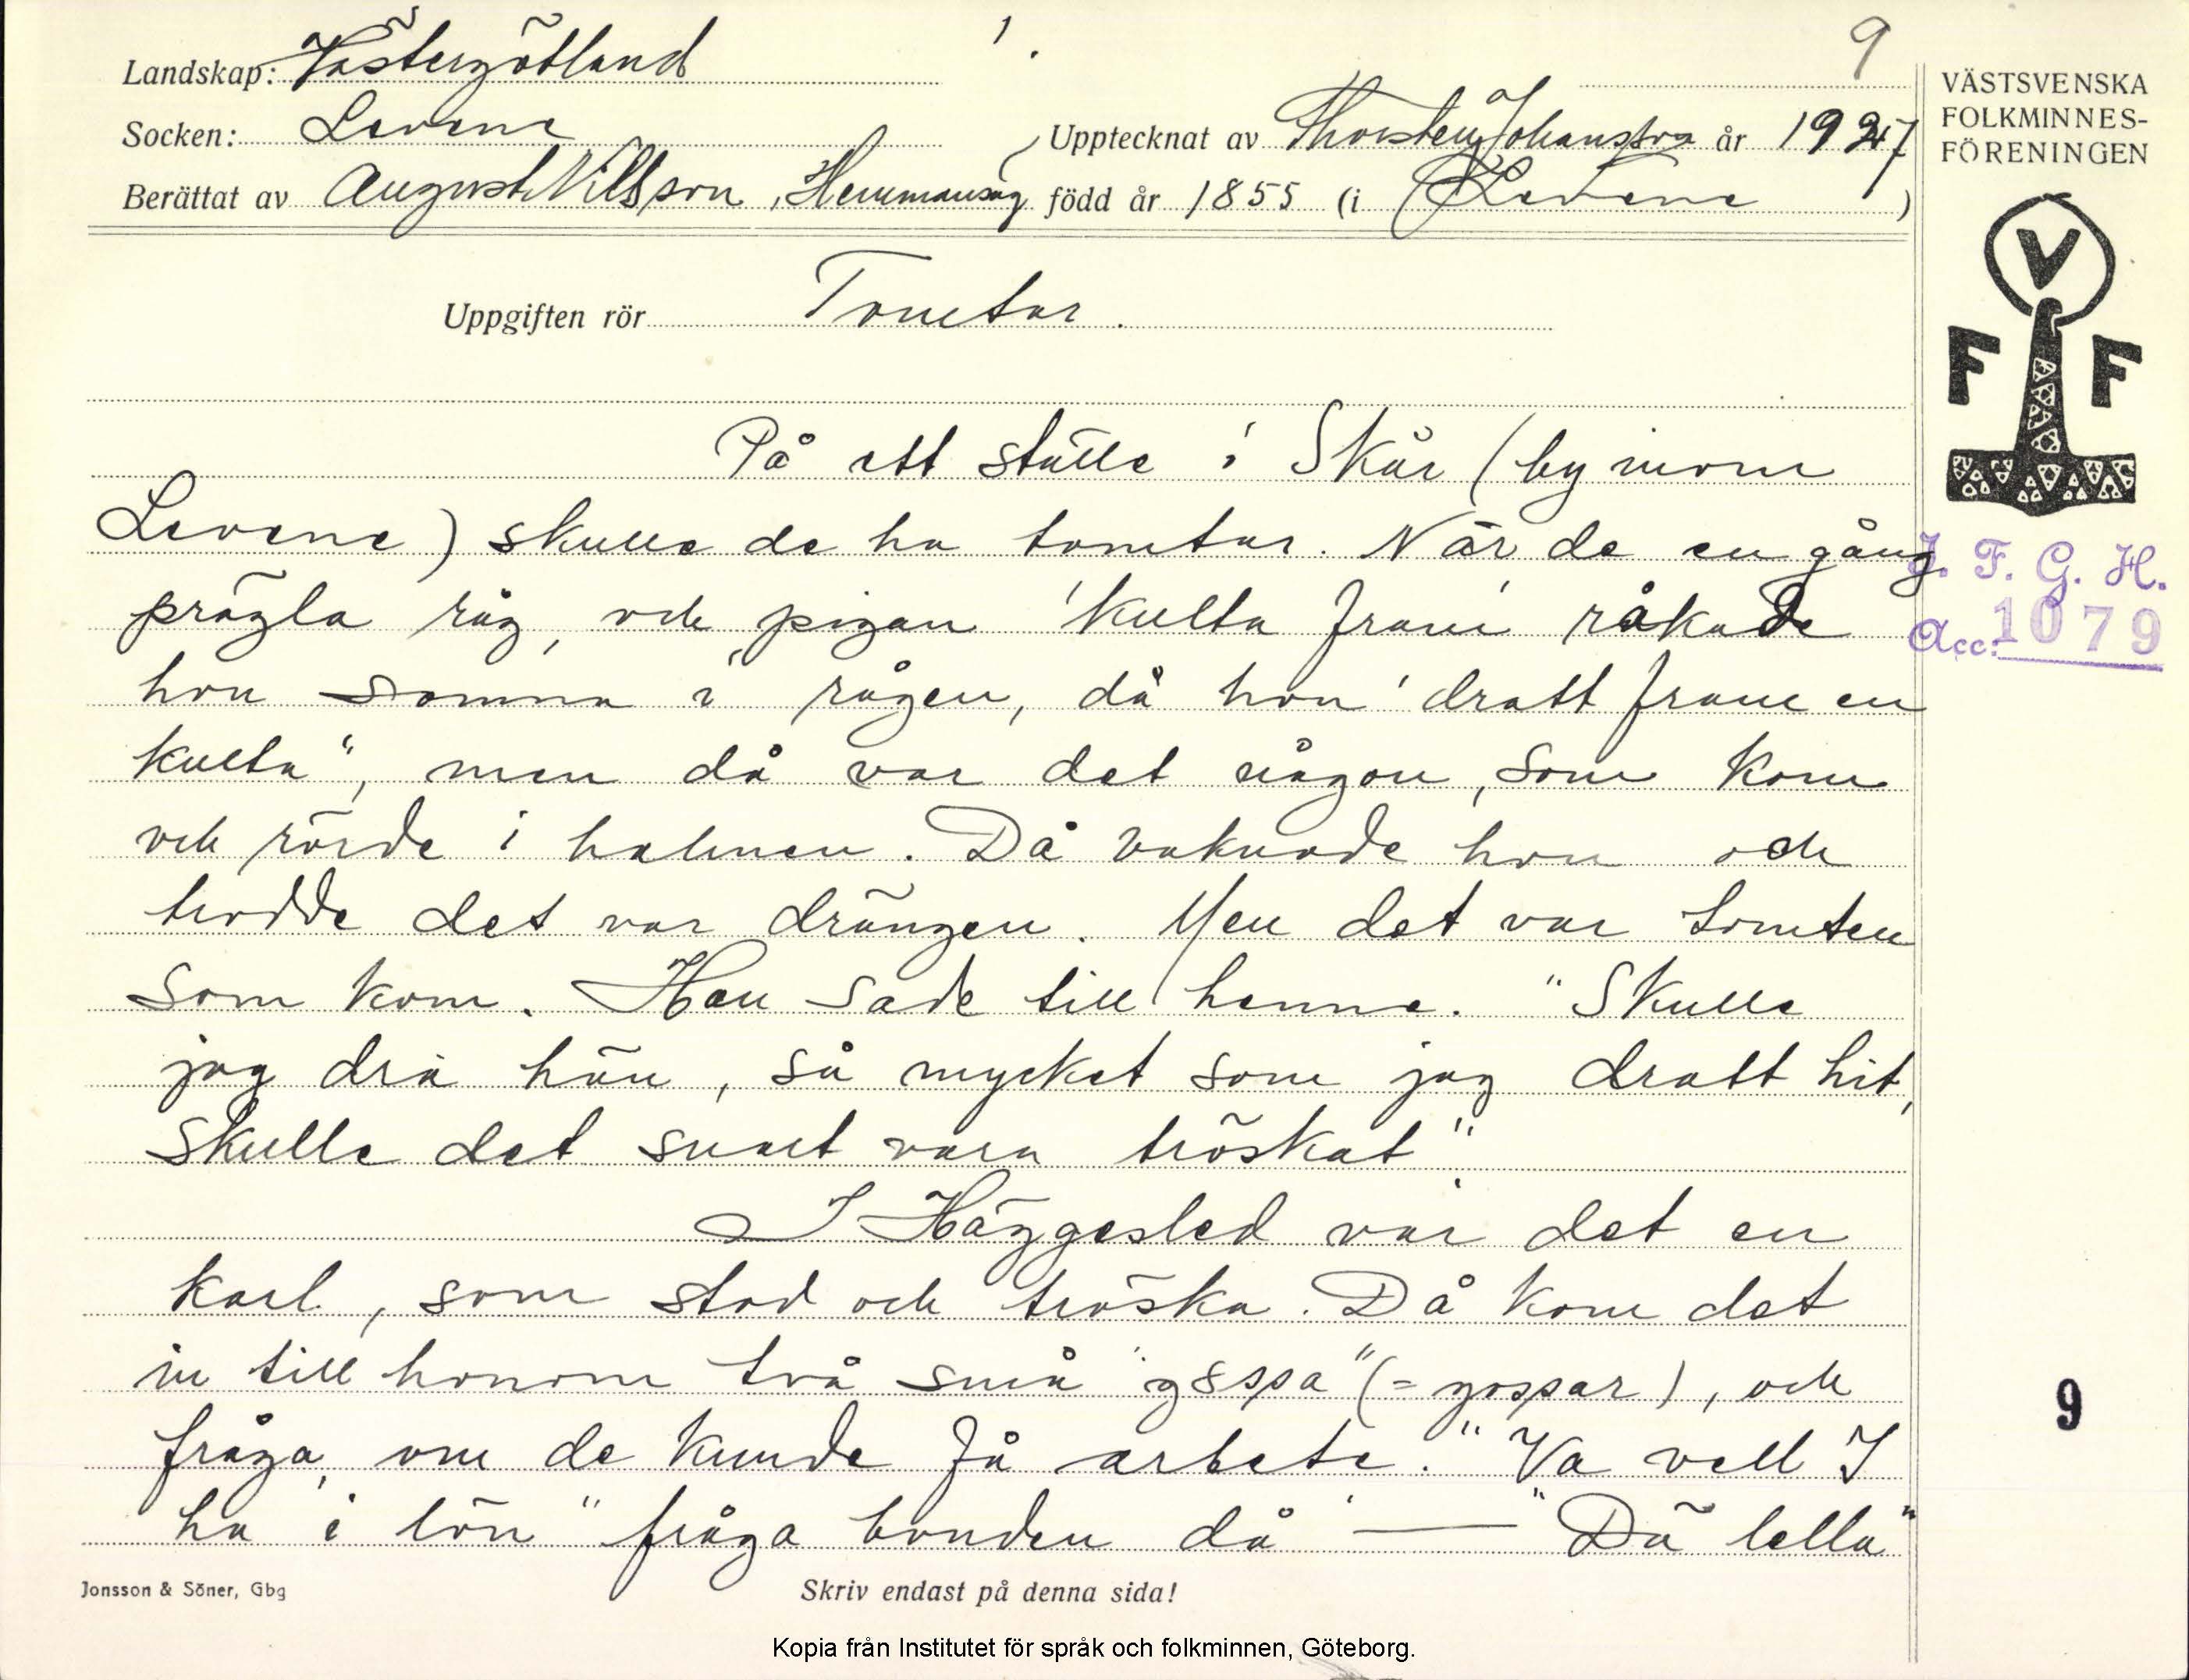 1.
9
Landskap: Västergötland
Socken: Levene
Upptecknat av Thorsten Johansson år 1927
Berättat av August Nilsson, Hemmansäg. född år 1855 (i Levene)
VÄSTSVENSKA
FOLKMINNES-
FÖRENINGEN
V
F F
Uppgiften rör Tomtar.
På ett ställe i Skår (by inom
Levene) skulle de ha tomtar. När de en gång
prägla råg, och pigan "kulta fram" råkade
hon somna i rågen, då hon "dratt fram en
kulta", men då var det någon, som kom
och rörde i halmen. Då vaknade hon och
trodde det var drängen. Men det var tomten
som kom. Han sade till henne. "Skulle
jag dra hän, så mycket som jag dratt hit,
skulle det snart vara tröskat".
I Häggesled var det en
karl, som stod och tröska. Då kom det
in till honom två små "gsspa" (= gossar), och
fråga, om de kunde få arbete. "Va vell I
ha i lön" fråga bonden då. — "Dä lella"
J. F. G. H.
Acc: 1079
9
Jonsson & Söner, Gbg
Skriv endast på denna sida!
Kopia från Institutet för språk och folkminnen, Göteborg.